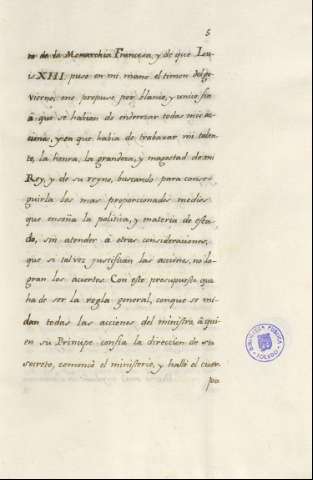 5
no de la Monarchia Francesa, y de que Lu-
is XIII. puso en mi mano el timon del go-
vierno, me propuse por blanco, y unico fin
à que se habian de enderezar todas mis ac-
ciones, y en que habia de trabaxar mi talen-
to, la honra, la grandeza, y magestad de mi
Rey, y de su reyno, buscando para conse-
guirla los mas proporcionados medios
que enseña la politica, y materia de esta-
do, sin atender à otras consideraciones,
que si tal vez justifican las acciones, no lo-
gran los aciertos. Con este presupuesto que
ha de ser la regla general, conque se mi-
dan todas las acciones del ministro, à qui-
en su Principe confia la direccion de su
secreto, comencè el ministerio, y hallè el cuer-
po
BIBLIOTECA PUBLICA
TOLEDO